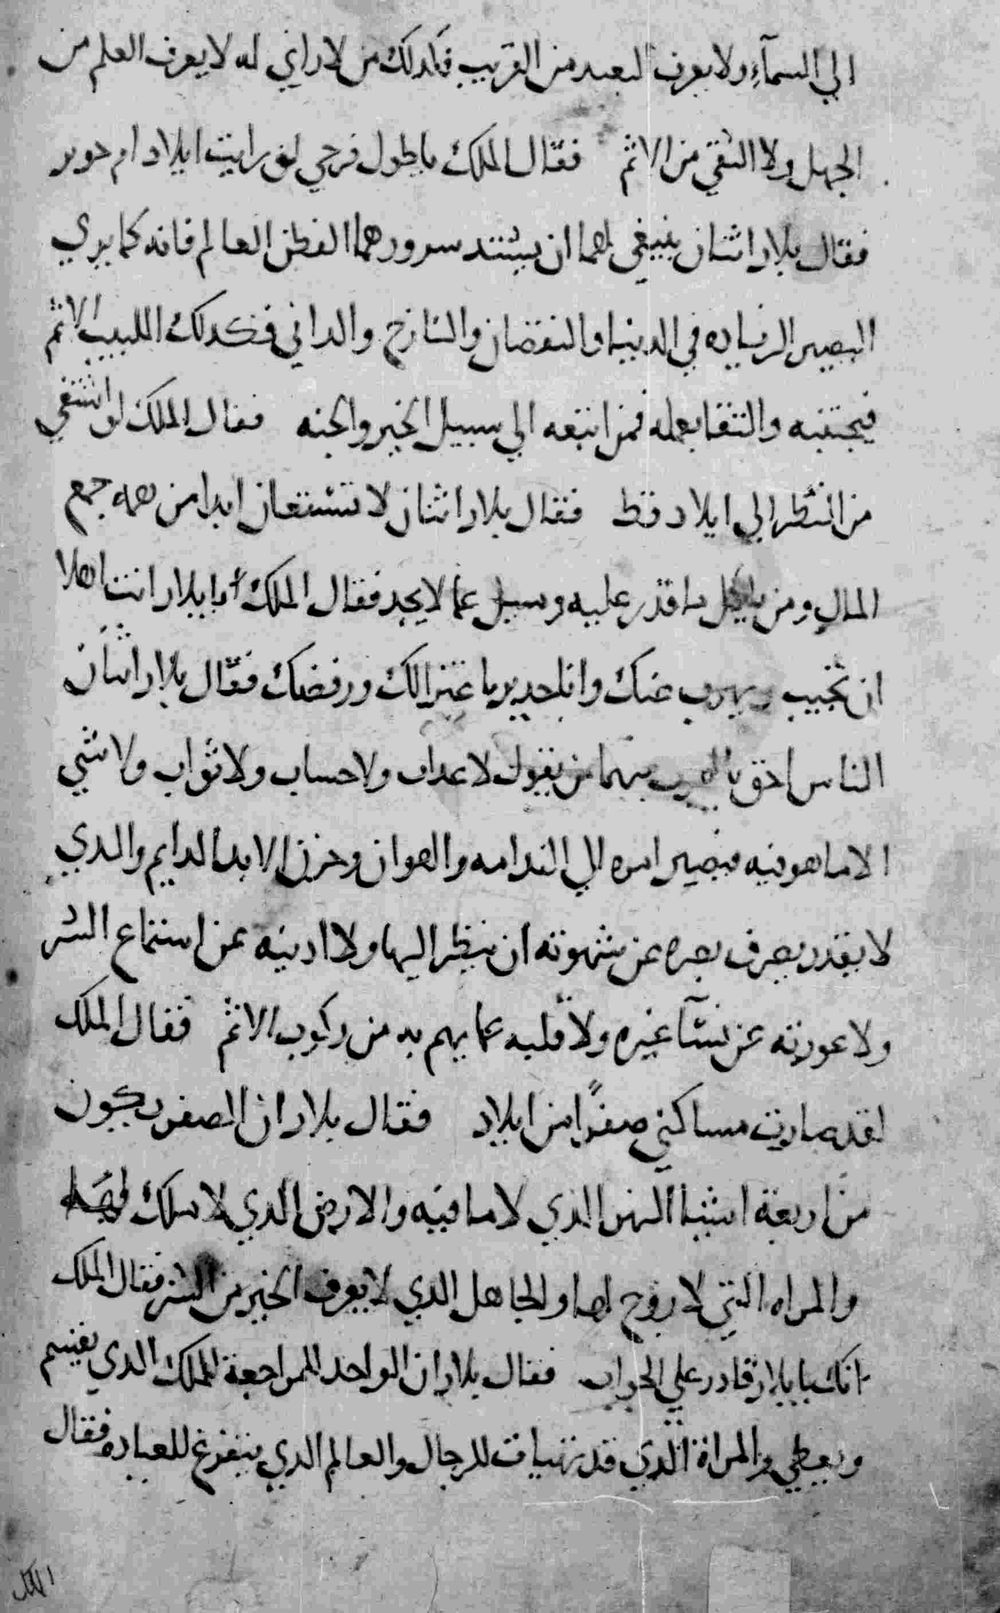 الي السمآء ولا يعرف البعيد من القريب فكدلك من لا راي له لا يعرف العلم من
الجهل ولا التقي من الاثم فقال الملك يا طول فرحي لو رايت ايلاد ام جوير
فقال بلار اثنان ينبغي لهما ان يشتد سرورهما الفطن العالم فانه كما يري
البصير الزياده في الدنيا والنقصان والنازح والداني فكدلك اللبيب الاثم
فيجتنبه والتقا يعمله فمن اتبعه الي سبيل الخير والجنه فقال الملك لو اشتفي
من النظر الي ايلاد قط فقال بلار اثنان لا تشتفان ابدا من همه جمع
المال ومن ياكل ما قدر عليه وسيل عما لا يجد فقال الملك اما يا بلار انت اهلا
ان تجيب ويهرب منك وانا جدير باعتزالك ورفضك فقال بلار اثنان
الناس احق بالهرب منهما من يقول لا عداب ولا حساب ولا ثواب ولا شي
الا ما هو فيه فيصير امره الي الندامه والهوان وحزن الابد الدايم والدي
لا يقدر يصرف بصره عن شهوته ان ينظر اليها ولا ادنيه عن استماع الشر
ولا عورته عن نسآ غيره ولا قلبه عما يهم به من ركوب الاثم فقال الملك
لقد صارت مساكني صفرًا من ايلاد فقال بلار ان الصفر يكون
من اربعة اشيا النهر الدي لا ما فيه والارض الدي لا ملك لها
والمراه التي لا زوج لها والجاهل الدي لا يعرف الخير من الشر فقال الملك
انك يا بلار قادر علي الجواب فقال بلار ان الواحد للمراجعة الملك الدي يقسم
ويعطي والمراة الدي قد تهيات للرجال والعالم الدي يتفرغ للعباده فقال
الملك